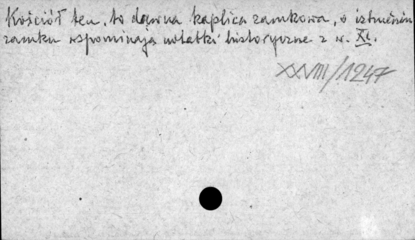 Kościół ten, to dawna kaplica zamkowa, o istnieniu
zamku wspominają notatki historyczne z w. XI.
XXVIII/1247